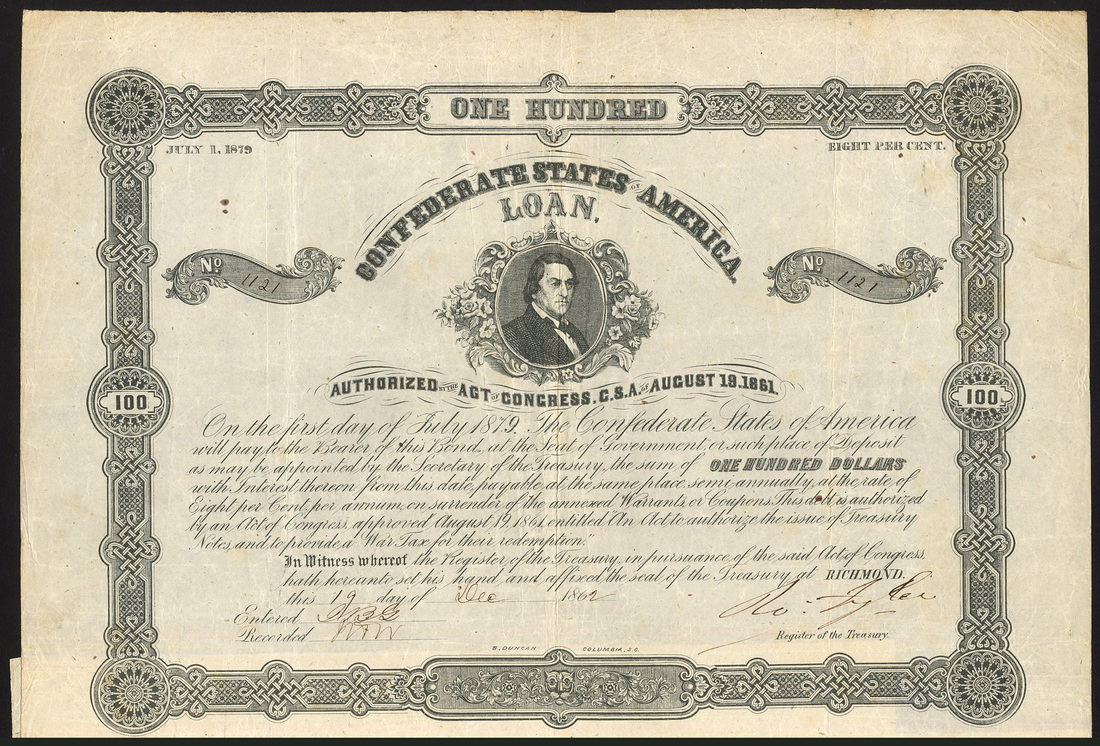 ONE HUNDRED
JULY 1, 1879
EIGHT PER CENT.
CONFEDERATE STATES OF AMERICA
LOAN.
No 1121
No 1121
AUTHORIZED BY THE ACT OF CONGRESS. C.S.A. OF AUGUST 19. 1861.
100
100
On the first day of July 1879. The Confederate States of America
will pay to the Bearer of this Bond, at the Seat of Government, or such place of Deposit
as may be appointed by the Secretary of the Treasury, the sum of ONE HUNDRED DOLLARS
with Interest thereon from this date, payable at the same place, semi-annually, at the rate of
Eight per Cent, per annum, on surrender of the annexed Warrants, or Coupons. This debt is authorized
by an Act of Congress, approved August 19, 1861, entitled "An Act to authorize the issue of Treasury
Notes, and to provide a War Tax for their redemption."
In Witness whereof the Register of the Treasury, in pursuance of the said Act of Congress
hath hereunto set his hand and affixed the seal of the Treasury at RICHMOND.
this 19 day of Dec 1862
Entered
Recorded
Ro. Tyler
Register of the Treasury.
B. DUNCAN COLUMBIA, S.C.